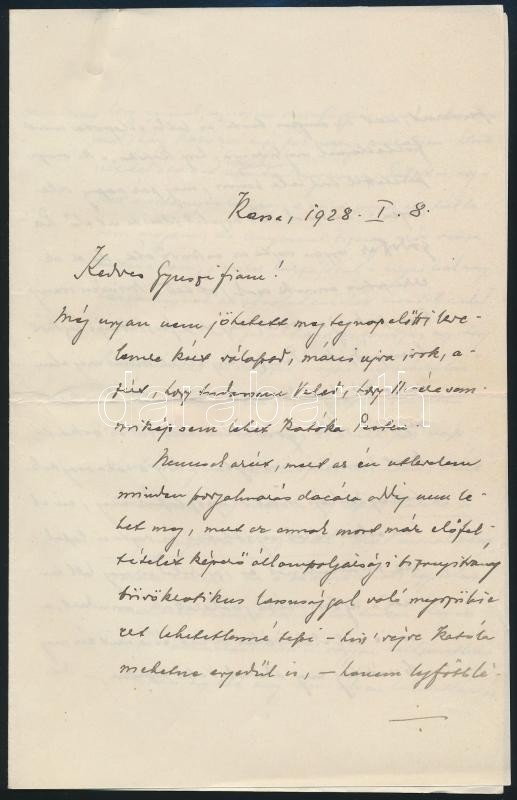 Kassa, 1928. I. 8.
Kedves Gyuszi fiam!
Még ugyan nem jöhetett meg tegnapelőtti leve-
lemre küldt válaszod, máris ujra irok, a-
zért, hogy tudassam Veled, hogy 11-én sem-
mikép sem lehet Katóka Pesten.
Nemcsak azért, mert az én utlevelem
minden szorgalmazás dacára addig nem le-
het meg, mert az annak most már előfel-
tételét képező állampolgársági bizonyitvány
bürokratikus lassusággal való megszerzé-
se ezt lehetetlenné teszi – hisz végre Katóka
mehetne egyedül is, – hanem legfőbbké-
darabanth